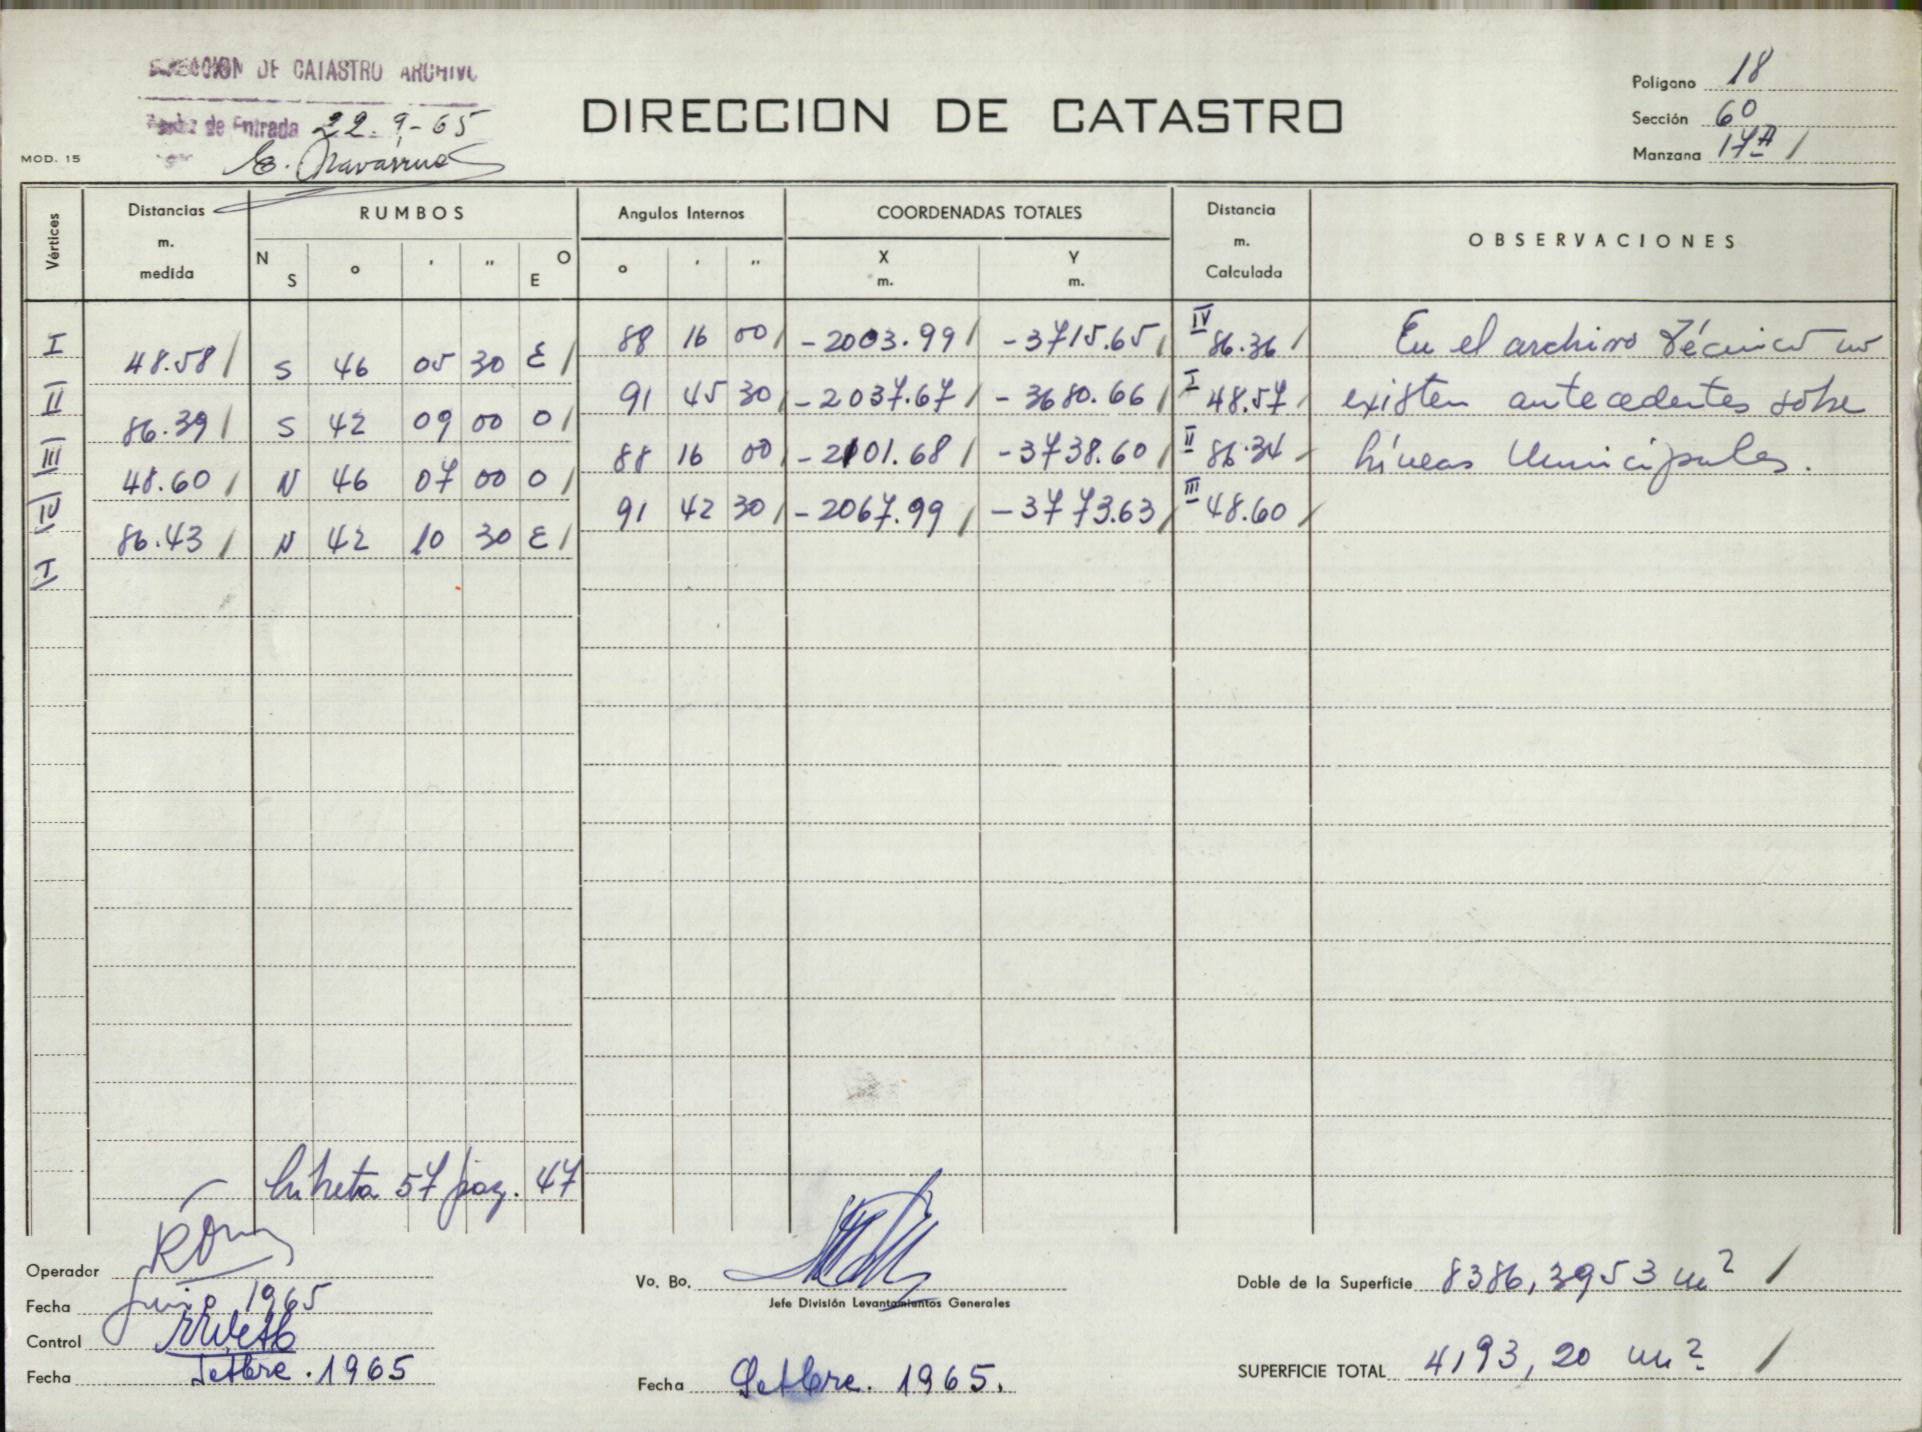 DIRECCION DE CATASTRO ARCHIVO
de Entrada 22.9-65
DIRECCION DE CATASTRO
Polígono 18
Sección 60
Manzana 17A /
MOD. 15
Vértices Distancias m. medida RUMBOS Angulos Internos COORDENADAS TOTALES Distancia m. Calculada OBSERVACIONES
N S ° ' " O E ° ' " X m. Y m.
I 88 16 00 / -2003.99 / -3715.65 / IV 86.36 / En el archivo técnico no
48.58 / S 46 05 30 E /
II 91 45 30 / -2037.67 / -3680.66 / I 48.57 / existen antecedentes sobre
86.39 / S 42 09 00 O /
III 88 16 00 / -2101.68 / -3738.60 / II 86.34 / Líneas Municipales.
48.60 / N 46 07 00 O /
IV 91 42 30 / -2067.99 / -3773.63 / III 48.60 /
86.43 / N 42 10 30 E /
I
Libreta 57 pag. 47
Operador
Fecha Junio 1965
Control
Fecha Setbre. 1965
Vo. Bo.
Jefe División Levantamientos Generales
Fecha Setbre. 1965.
Doble de la Superficie 8386,3953 m² /
SUPERFICIE TOTAL 4193,20 m² /